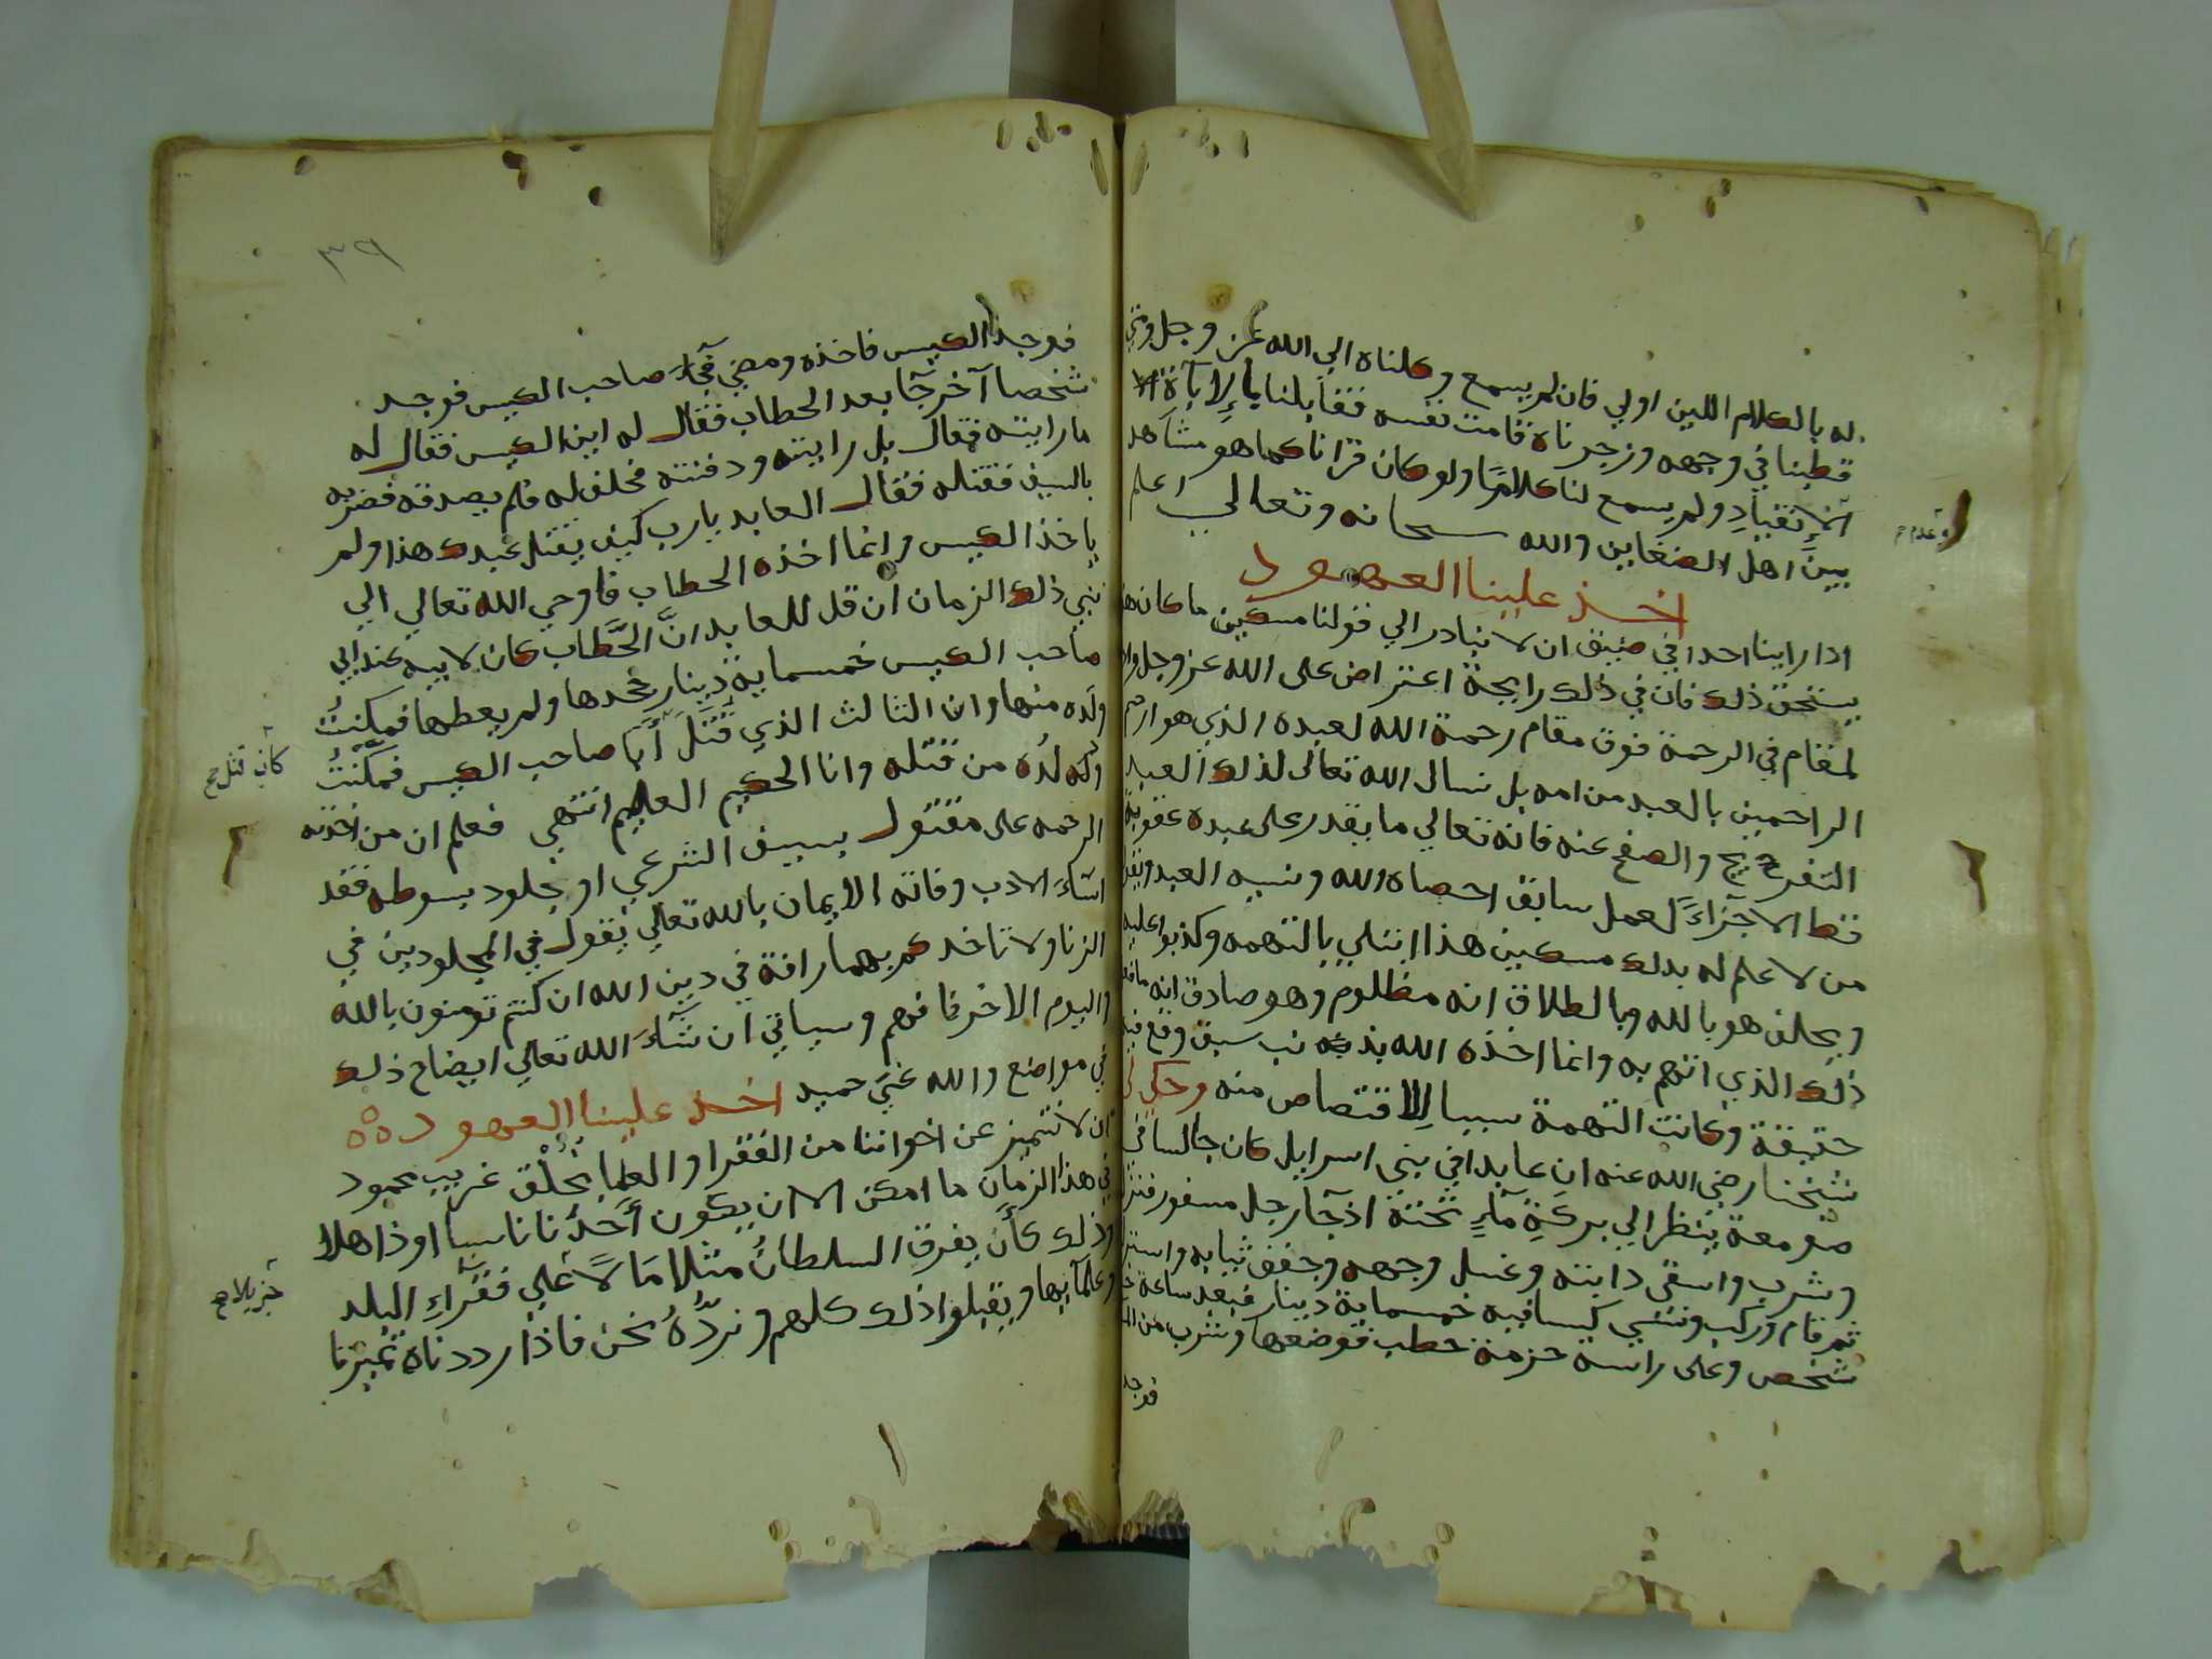 له بالكلام اللين اولي فان لم يسمع وكلناه الي الله عز وجل ومتي
قطبنا في وجهه وزجرناه قامت نفسه فقابلنا بالإبآة
الإنقيادِ ولم يسمع لنا كلامًا ولو كان قرانا كما هو مشاهد
بينَ اهل الضغاين والله سبحانه وتعالي اعلم
وعدم
اخذ علينا العهود
اذا راينا احدا في ضيق ان لا نبادر الي قولنا مسكين ما كان هذا
يستحق ذلك فان في ذلك رايحة اعتراض على الله عز وجل ولا
لمقام في الرحمة فوق مقام رحمة الله لعبده الذي هو ارحم
الراحمين بالعبد من امه بل نسال الله تعالى لذلك العبد
التفريج والصفح عنه فانه تعالي ما يقدر على عبده عقوبة
قط الا جزاءً لعمل سابق احصاه الله ونسيه العبد ويقول
من لا علم له بذلك مسكين هذا ابتلي بالتهمه وكذبوا عليه
ويحلف هو بالله وبالطلاق انه مظلوم وهو صادق انه ما فعل
ذلك الذي اتهم به وانما اخذه الله بذنب سبق وقع فيه
حقيقة وكانت التهمة سببا للاقتصاص منه وحكي لي
شيخنا رضي الله عنه ان عابدا في بني اسرايل كان جالسا في
صومعة ينظر الي بركةِ مآءٍ تحتة اذ جآ رجل مسفور فنزل
وشرب واسقى دابته وغسل وجهه وجفف ثيابه واستراح
ثم قام وركب ونسي كيسا فيه خمسماية دينار فبعد ساعة جا
شخص وعلى راسه حزمة حطب فوضعها وشرب من الما
فوجد
٣٩
فوجد الكيس فاخذه ومضي فجآءَ صاحب الكيس فوجد
شخصا آخر جآ بعد الحطاب فقال له اين الكيس فقال له
ما رايته فقال بل رايته ودفنته فحلف له فلم يصدقه فضربه
بالسيف فقتله فقال العابد يارب كيف يقتل عبدك هذا ولم
ياخذ الكيس وانما اخذه الحطاب فاوحي الله تعالي الي
نبي ذلك الزمان ان قل للعابد انَّ الحَطَّاب كان لابيه عند ابي
صاحب الكيس خمسماية دينار جحدها ولم يعطها فمكنتُ
ولَده منها وان الثالث الذي قُتِلَ أبَا صاحب الكيس فمكّنْتُ
كان قتل صح
ولده من قتله وانا الحكيم العليم انتهي فعلم ان من اخذته
الرحمه على مقتول بسيف الشرعي او مجلود بسوطه فقد
اسآءَ الادب وفاته الايمان بالله تعالي يقول في المجلودين في
الزنا ولا تاخذكم بهما رافة في دين الله ان كنتم تومنون بالله
واليوم الاخر فافهم وسياتي ان شآءَ الله تعالي ايضاح ذلك
في مواضع والله غني حميد اخذ علينا العهود
ان لا نتميز عن اخواننا من الفقرا والعلما بخُلْق غريب محمود
في هذا الزمان ما امكن الا ان يكون أحدُنا ناسيا او ذاهلا
وذلك كأن يفرق السلطانُ مثلا مَالًا علي فقرآءِ البلد
جزيلا صح
وعلمآيها ويقبلوا ذلك كلهم ونردُّهُ نحن فاذا رددناه تميزنا